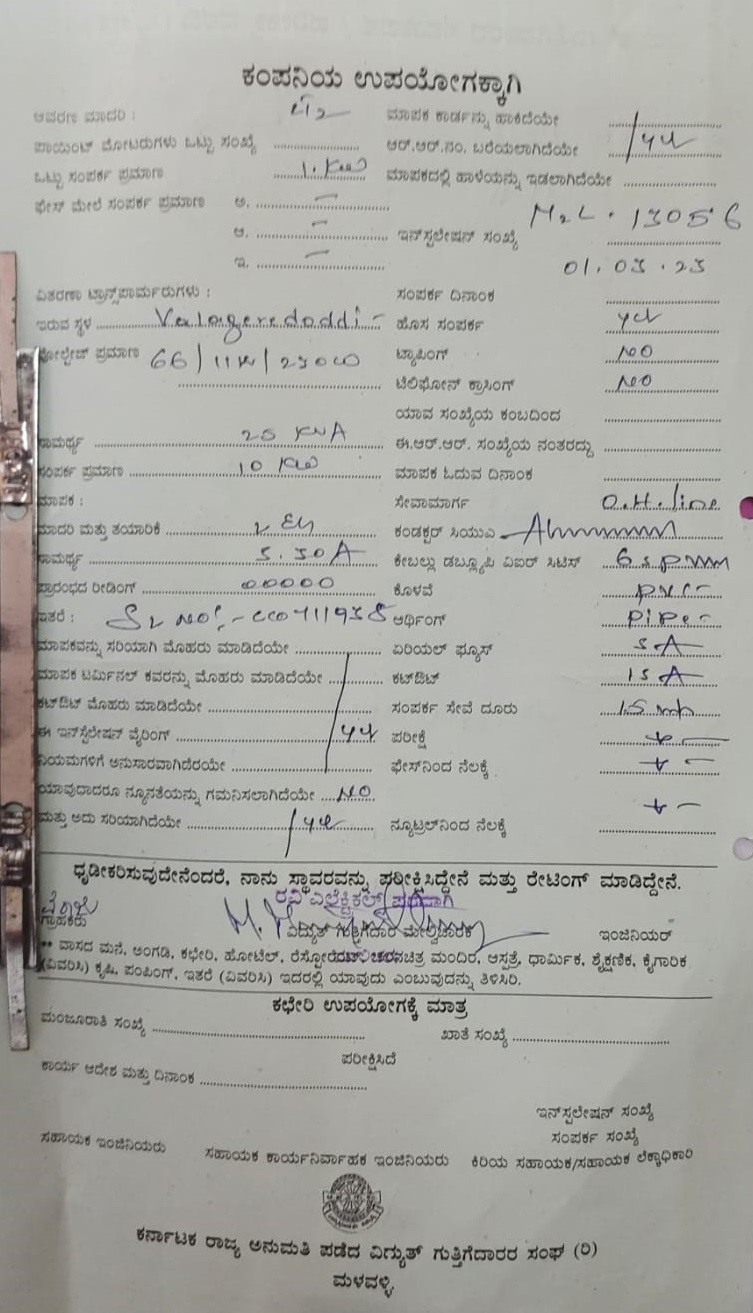 ಕಂಪನಿಯ ಉಪಯೋಗಕ್ಕಾಗಿ
ಆವರಣ ಮಾದರಿ : ಮಾಪಕ ಕಾರ್ಡನ್ನು ಹಾಕಿದೆಯೇ
ಪಾಯಿಂಟ್ ಮೋಟರುಗಳು ಒಟ್ಟು ಸಂಖ್ಯೆ ಆರ್.ಆರ್.ನಂ. ಬರೆಯಲಾಗಿದೆಯೇ
ಒಟ್ಟು ಸಂಪರ್ಕ ಪ್ರಮಾಣ 1. Kw ಮಾಪಕದಲ್ಲಿ ಹಾಳೆಯನ್ನು ಇಡಲಾಗಿದೆಯೇ
ಫೇಸ್ ಮೇಲೆ ಸಂಪರ್ಕ ಪ್ರಮಾಣ ಅ. –
ಆ. – ಇನ್‌ಸ್ಟಲೇಷನ್ ಸಂಖ್ಯೆ 13056
ಇ. – 01.03.23
ವಿತರಣಾ ಟ್ರಾನ್ಸ್‌ಪಾರ್ಮರುಗಳು : ಸಂಪರ್ಕ ದಿನಾಂಕ
ಇರುವ ಸ್ಥಳ Valageredoddi - ಹೊಸ ಸಂಪರ್ಕ
ವೋಲ್ಟೇಜ್ ಪ್ರಮಾಣ ಟ್ಯಾಪಿಂಗ್ NO
ಟೆಲಿಫೋನ್ ಕ್ರಾಸಿಂಗ್ NO
ಯಾವ ಸಂಖ್ಯೆಯ ಕಂಬದಿಂದ
ಸಾಮರ್ಥ್ಯ 25 KVA ಈ.ಆರ್.ಆರ್. ಸಂಖ್ಯೆಯ ನಂತರದ್ದು
ಸಂಪರ್ಕ ಪ್ರಮಾಣ 10 Kw ಮಾಪಕ ಓದುವ ದಿನಾಂಕ
ಮಾಪಕ : ಸೇವಾಮಾರ್ಗ O.H. line
ಮಾದರಿ ಮತ್ತು ತಯಾರಿಕೆ ಕಂಡಕ್ಟರ್ ಸಿಯುಎ
ಸಾಮರ್ಥ್ಯ 5.30A ಕೇಬಲ್ಲು ಡಬ್ಲ್ಯೂಪಿ ವಿಐಆರ್ ಸಿಟಿಸ್
ಪ್ರಾರಂಭದ ರೀಡಿಂಗ್ 00000 ಕೊಳವೆ PVC -
ಇತರೆ : ಆರ್ಥಿಂಗ್ PiPe -
ಮಾಪಕವನ್ನು ಸರಿಯಾಗಿ ಮೊಹರು ಮಾಡಿದೆಯೇ ಏರಿಯಲ್ ಫ್ಯೂಸ್ 5 A
ಮಾಪಕ ಟರ್ಮಿನಲ್ ಕವರನ್ನು ಮೊಹರು ಮಾಡಿದೆಯೇ ಕಟ್‌ಔಟ್ 15 A
ಕಟ್‌ಔಟ್ ಮೊಹರು ಮಾಡಿದೆಯೇ ಸಂಪರ್ಕ ಸೇವೆ ದೂರು
ಈ ಇನ್‌ಸ್ಟಲೇಷನ್ ವೈರಿಂಗ್ ಪರೀಕ್ಷೆ + -
ನಿಯಮಗಳಿಗೆ ಅನುಸಾರವಾಗಿದೆರಯೇ ಫೇಸ್‌ನಿಂದ ನೆಲಕ್ಕೆ + -
ಯಾವುದಾದರೂ ನ್ಯೂನತೆಯನ್ನು ಗಮನಿಸಲಾಗಿದೆಯೇ NO
ಮತ್ತು ಅದು ಸರಿಯಾಗಿದೆಯೇ ನ್ಯೂಟ್ರಲ್‌ನಿಂದ ನೆಲಕ್ಕೆ + -
ಧೃಡೀಕರಿಸುವುದೇನೆಂದರೆ, ನಾನು ಸ್ಥಾವರವನ್ನು ಪರೀಕ್ಷಿಸಿದ್ದೇನೆ ಮತ್ತು ರೇಟಿಂಗ್ ಮಾಡಿದ್ದೇನೆ.
ರವಿ ಎಲೆಕ್ಟ್ರಿಕಲ್ಸ್ ಪರವಾಗಿ
ಗ್ರಾಹಕರು ವಿದ್ಯುತ್ ಗುತ್ತಿಗೆದಾರ ಮೇಲ್ವಿಚಾರಕ ಇಂಜಿನಿಯರ್
** ವಾಸದ ಮನೆ, ಅಂಗಡಿ, ಕಛೇರಿ, ಹೋಟೆಲ್, ಚಿತ್ರ ಮಂದಿರ, ಆಸ್ಪತ್ರೆ, ಧಾರ್ಮಿಕ, ಶೈಕ್ಷಣಿಕ, ಕೈಗಾರಿಕ
(ವಿವರಿಸಿ) ಕೃಷಿ, ಪಂಪಿಂಗ್, ಇತರೆ (ವಿವರಿಸಿ) ಇದರಲ್ಲಿ ಯಾವುದು ಎಂಬುವುದನ್ನು ತಿಳಿಸಿರಿ.
ಕಛೇರಿ ಉಪಯೋಗಕ್ಕೆ ಮಾತ್ರ
ಮಂಜೂರಾತಿ ಸಂಖ್ಯೆ ಖಾತೆ ಸಂಖ್ಯೆ
ಪರೀಕ್ಷಿಸಿದೆ
ಕಾರ್ಯ ಆದೇಶ ಮತ್ತು ದಿನಾಂಕ
ಇನ್‌ಸ್ಟಲೇಷನ್ ಸಂಖ್ಯೆ
ಸಂಪರ್ಕ ಸಂಖ್ಯೆ
ಸಹಾಯಕ ಇಂಜಿನಿಯರು ಸಹಾಯಕ ಕಾರ್ಯನಿರ್ವಾಹಕ ಇಂಜಿನಿಯರು ಕಿರಿಯ ಸಹಾಯಕ/ಸಹಾಯಕ ಲೆಕ್ಕಾಧಿಕಾರಿ
ಕರ್ನಾಟಕ ರಾಜ್ಯ ಅನುಮತಿ ಪಡೆದ ವಿದ್ಯುತ್ ಗುತ್ತಿಗೆದಾರರ ಸಂಘ (ರಿ)
ಮಳವಳ್ಳಿ